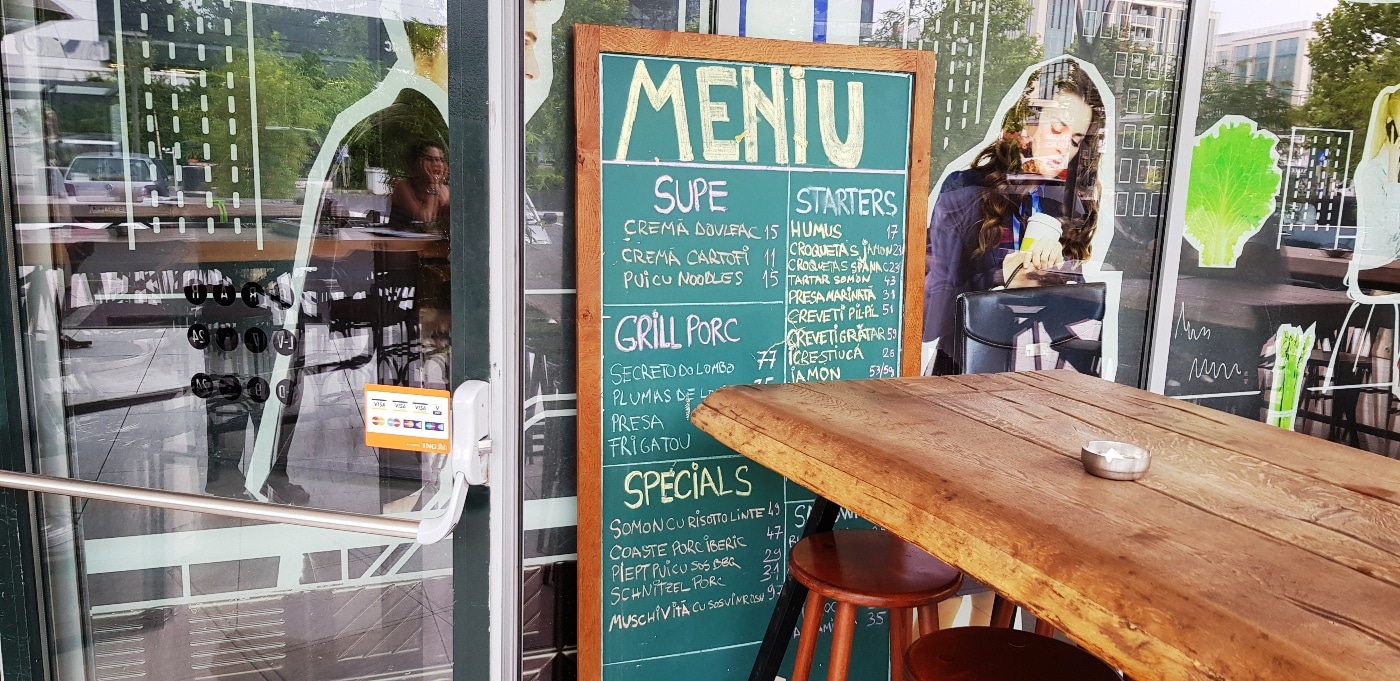 MENIU
SUPE
CREMĂ DOVLEAC 15
CREMĂ CARTOFI 11
PUI CU NOODLES 15
GRILL PORC
SECRETO DO LOMBO 77
PLUMAS DE
PRESA
FRIGATOU
SPECIALS
SOMON CU RISOTTO LINTE 49
COASTE PORC IBERIC 47
PIEPT PUI CU SOS BBQ 29
SCHNITZEL PORC 31
MUSCHI VITĂ CU SOS VIN ROSU 97
STARTERS
HUMUS 17
CROQUETAS JAMON
CROQUETAS SPANAC
TARTAR SOMON 43
PRESA MARINATĂ 31
CREVETI PIL-PIL 51
CREVETI GRĂTAR 59
ICRE STIUCĂ 26
JAMON 53/59
35
VISA VISA VISA V
ING